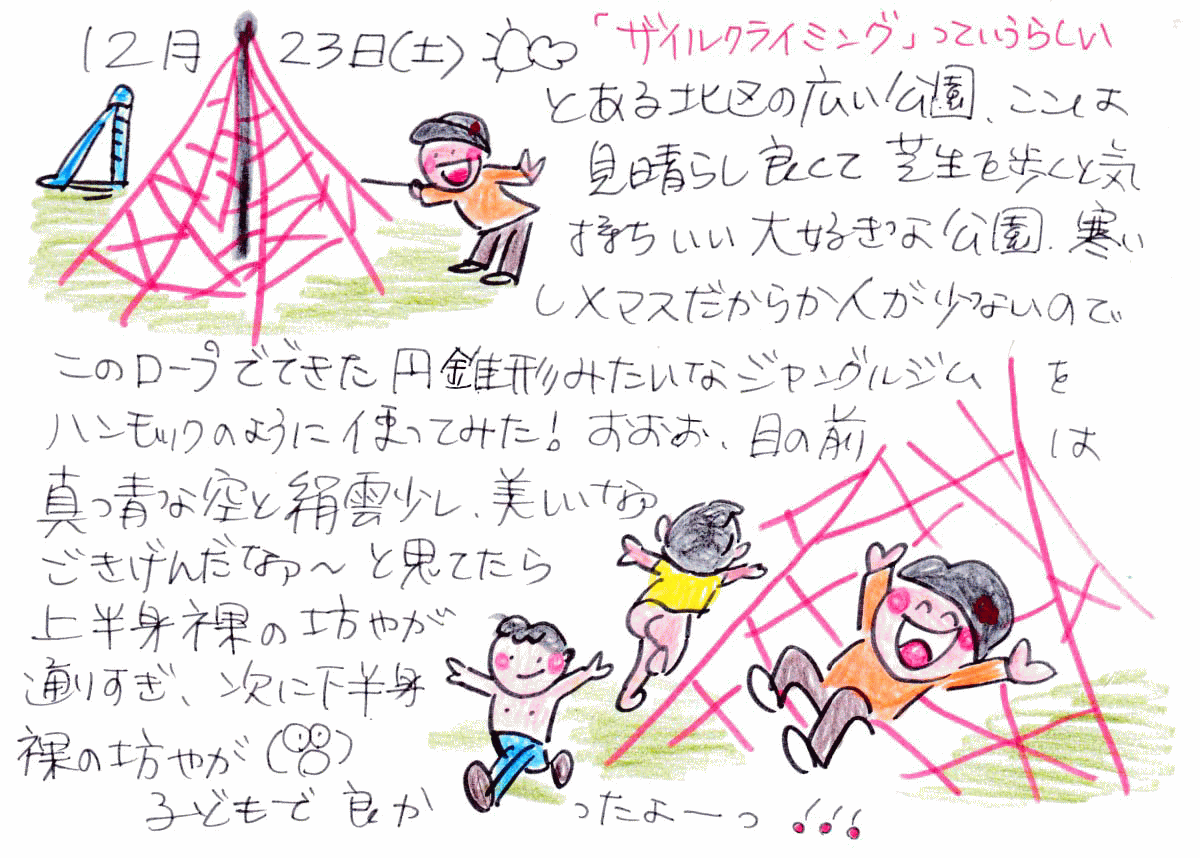 12月23日(土)
「ザイルクライミング」っていうらしい
とある北区の広い公園、ここは
見晴らし良くて芝生を歩くと気
持ちいい大好きな公園、寒い
しXマスだからか人が少ないので
このロープでできた円錐形みたいなジャングルジムを
ハンモックのように使ってみた!おおお、目の前は
真っ青な空と絹雲少し、美しいなァ
ごきげんだなァ〜と思てたら
上半身裸の坊やが
通りすぎ、次に下半身
裸の坊やが
子どもで良かったよーっ!!!